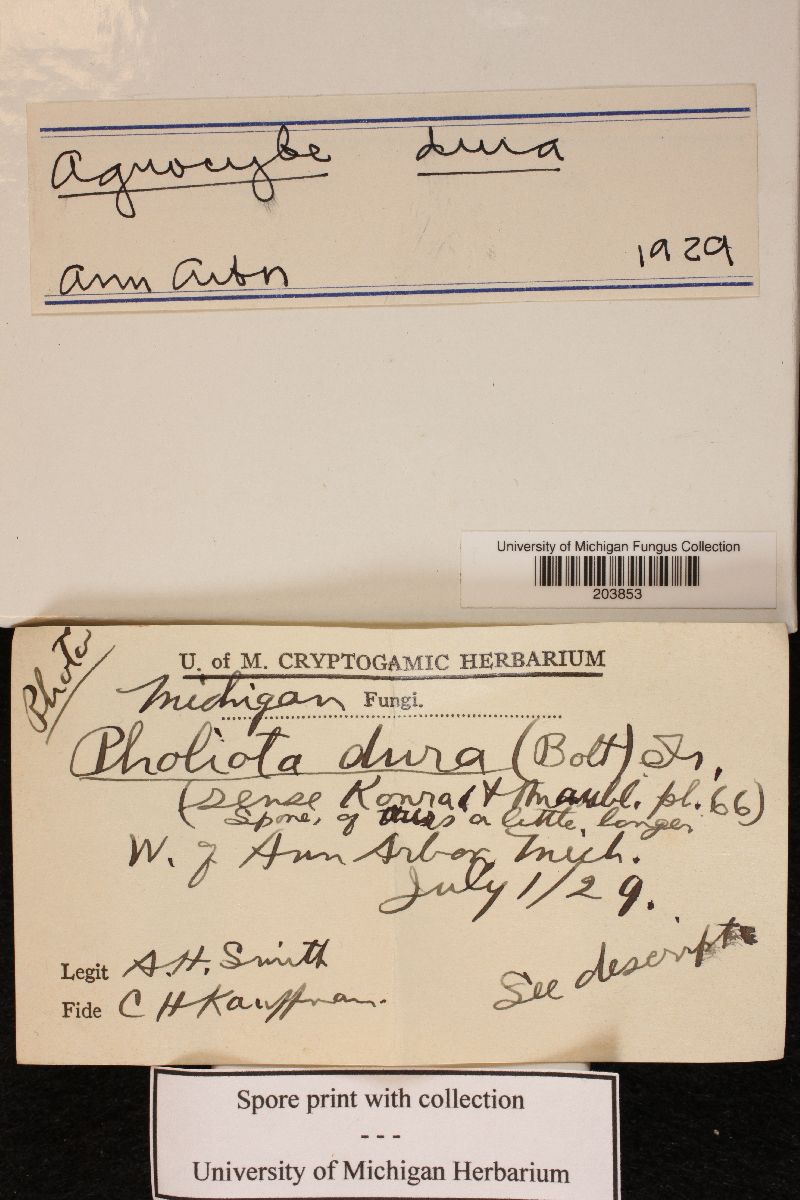 Agrocybe dura
Ann Arbor 1929
University of Michigan Fungus Collection
203853
Photo
U. of M. CRYPTOGAMIC HERBARIUM
Michigan Fungi.
Pholiota dura (Bolt) Fr.
(sense Konrad & Maubl. pl. 66)
Spores of this a little longer
W. of Ann Arbor, Mich.
July 1/29.
Legit A.H. Smith
Fide C H Kauffman.
See descript
Spore print with collection
- - -
University of Michigan Herbarium